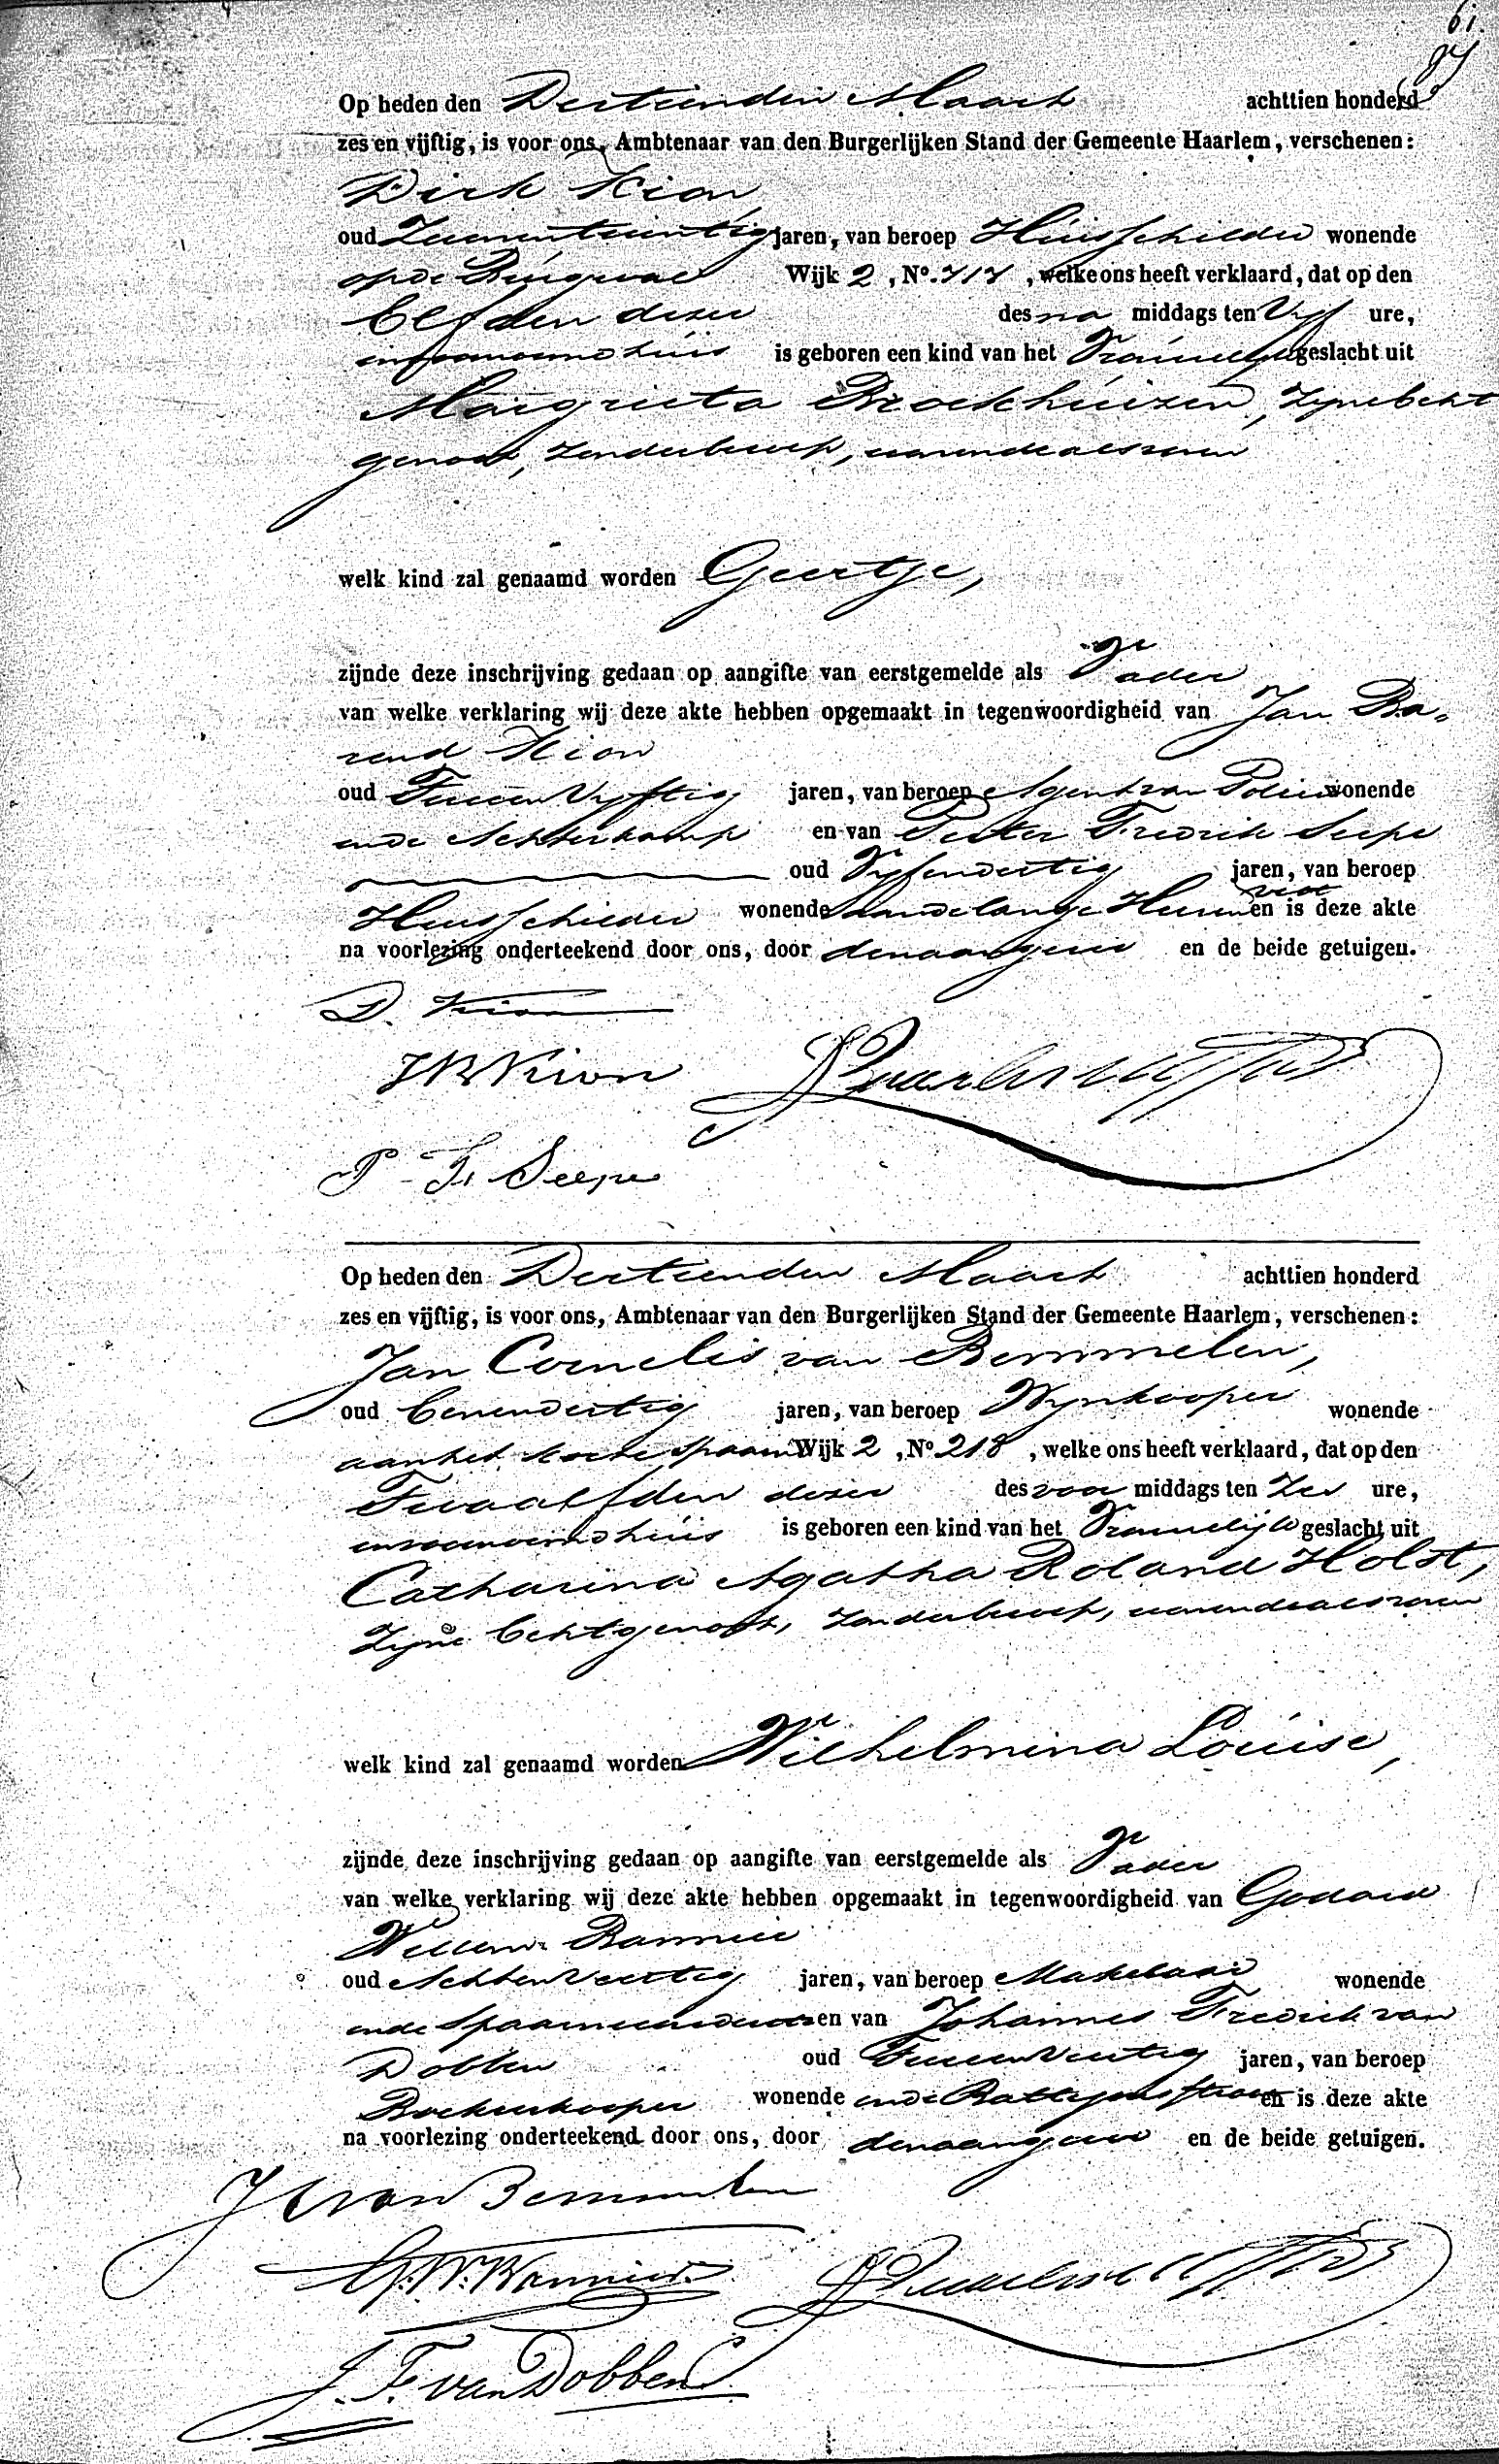 61.
Op heden den Dertienden Maart achttien honderd
zes en vijftig, is voor ons, Ambtenaar van den Burgerlijken Stand der Gemeente Haarlem, verschenen:
Dirk Kion
oud Zevenentwintig jaren, van beroep Huisschilder wonende
op de Burgwal Wijk 2, No. 717, welke ons heeft verklaard, dat op den
Elfden dezer des na middags ten Vijf ure,
in voornoemd huis is geboren een kind van het Vrouwelijk geslacht uit
Margrieta Broekhuizen, zijne Echt
genoot, zonder beroep, wonende als voren
welk kind zal genaamd worden Geertje,
zijnde deze inschrijving gedaan op aangifte van eerstgemelde als Vader
van welke verklaring wij deze akte hebben opgemaakt in tegenwoordigheid van Jan Ba-
rend Kion
oud Tweeen Vyftig jaren, van beroep Agent van Policie wonende
in de Achterkamp en van Pieter Fredrik Seepe
oud Vijfendertig jaren, van beroep
Huisschilder wonende aan de lange Heeren vest en is deze akte
na voorlezing onderteekend door ons, door den aangever en de beide getuigen.
D. Kion
J B Kion
P. F. Seepe
Op heden den Dertienden Maart achttien honderd
zes en vijftig, is voor ons, Ambtenaar van den Burgerlijken Stand der Gemeente Haarlem, verschenen:
Jan Cornelis van Bemmelen,
oud Eenendertig jaren, van beroep Wynkooper wonende
aan het korte Spaarne Wijk 2, No 218, welke ons heeft verklaard, dat op den
Twaalfden dezer des voor middags ten Zes ure,
in voornoemd huis is geboren een kind van het Vrouwelijke geslacht uit
Catharina Agatha Roland Holst,
Zijne Echtgenoot, zonder beroep, wonende als voren
welk kind zal genaamd worden Wilhelmina Louise,
zijnde deze inschrijving gedaan op aangifte van eerstgemelde als Vader
van welke verklaring wij deze akte hebben opgemaakt in tegenwoordigheid van Godard
Willem Bannier
oud Achtenveertig jaren, van beroep Makelaar wonende
in de en van Johannes Fredrik van
Dobben oud Tweeenveertig jaren, van beroep
Boekverkooper wonende in de en is deze akte
na voorlezing onderteekend door ons, door den aangever en de beide getuigen.
J C van Bemmelen
G. W. Bannier.
J. F. van Dobben